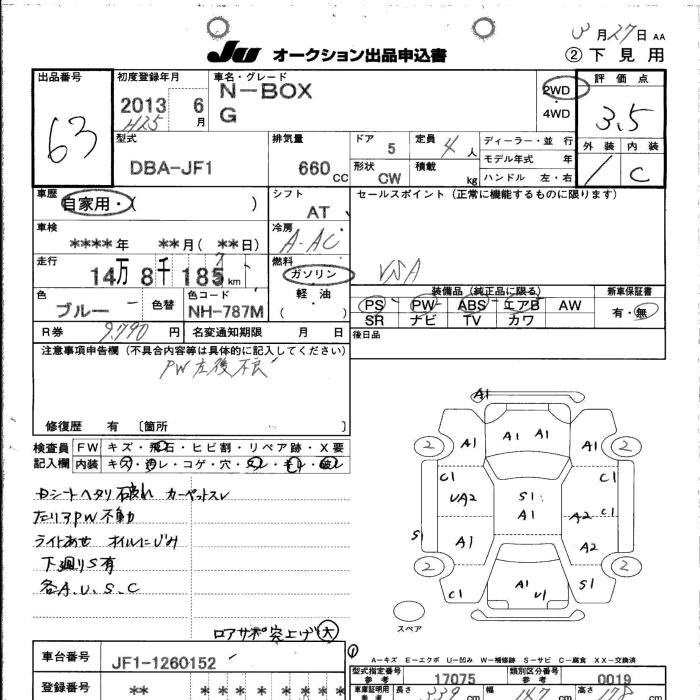 3月27日 AA
JU オークション出品申込書 ②下見用
出品番号 初度登録年月 車名・グレード 評価点
63 2013 6月 N-BOX 2WD 3.5
H25 G 4WD
外装 内装
1 C
型式 排気量 ドア 5 定員 4人 ディーラー・並行
DBA-JF1 660cc 形状 CW 積載 kg モデル年式 年
ハンドル 左・右
車歴 自家用・( ) シフト AT セールスポイント (正常に機能するものに限ります)
車検 ****年 **月(**日) 冷房 A-AC
走行 14万8千185km 燃料 ガソリン 軽油 ( )
VSA
色 ブルー 色替 色コード NH-787M
装備品 (純正品に限る) 新車保証書
PS PW ABS エアB AW 有・無
SR ナビ TV カワ
R券 9,790円 名変通知期限 月 日 後日品
注意事項申告欄 (不具合内容等は具体的に記入してください)
PW左後不良
修復歴 有 〔箇所 〕
検査員記入欄 FW キズ・飛石・ヒビ割・リペア跡・X要
内装 キズ・汚レ・コゲ・穴・スレ・キレ・破レ
Dシートヘタリ 破れ カーペットスレ
左リアPW不動
ライトあせ オイルにじみ
下廻りS有
各A.U.S.C
ロアサポ突上げ大
A1
A1 A1 A1
2 2
C1 C1
UA2 S1 C1
A1 A2
S1 A1 A2
2 2
C1 A1 U1 S1
スペア
A-キズ E-エクボ U-凹み W-補修跡 S-サビ C-腐食 XX-交換済
車台番号 JF1-1260152
型式指定番号 参考 17075 類別区分番号 参考 0019
登録番号 ** * * * * * * *
車庫証明用 参考 長さ 339cm 幅 cm 高さ 178cm